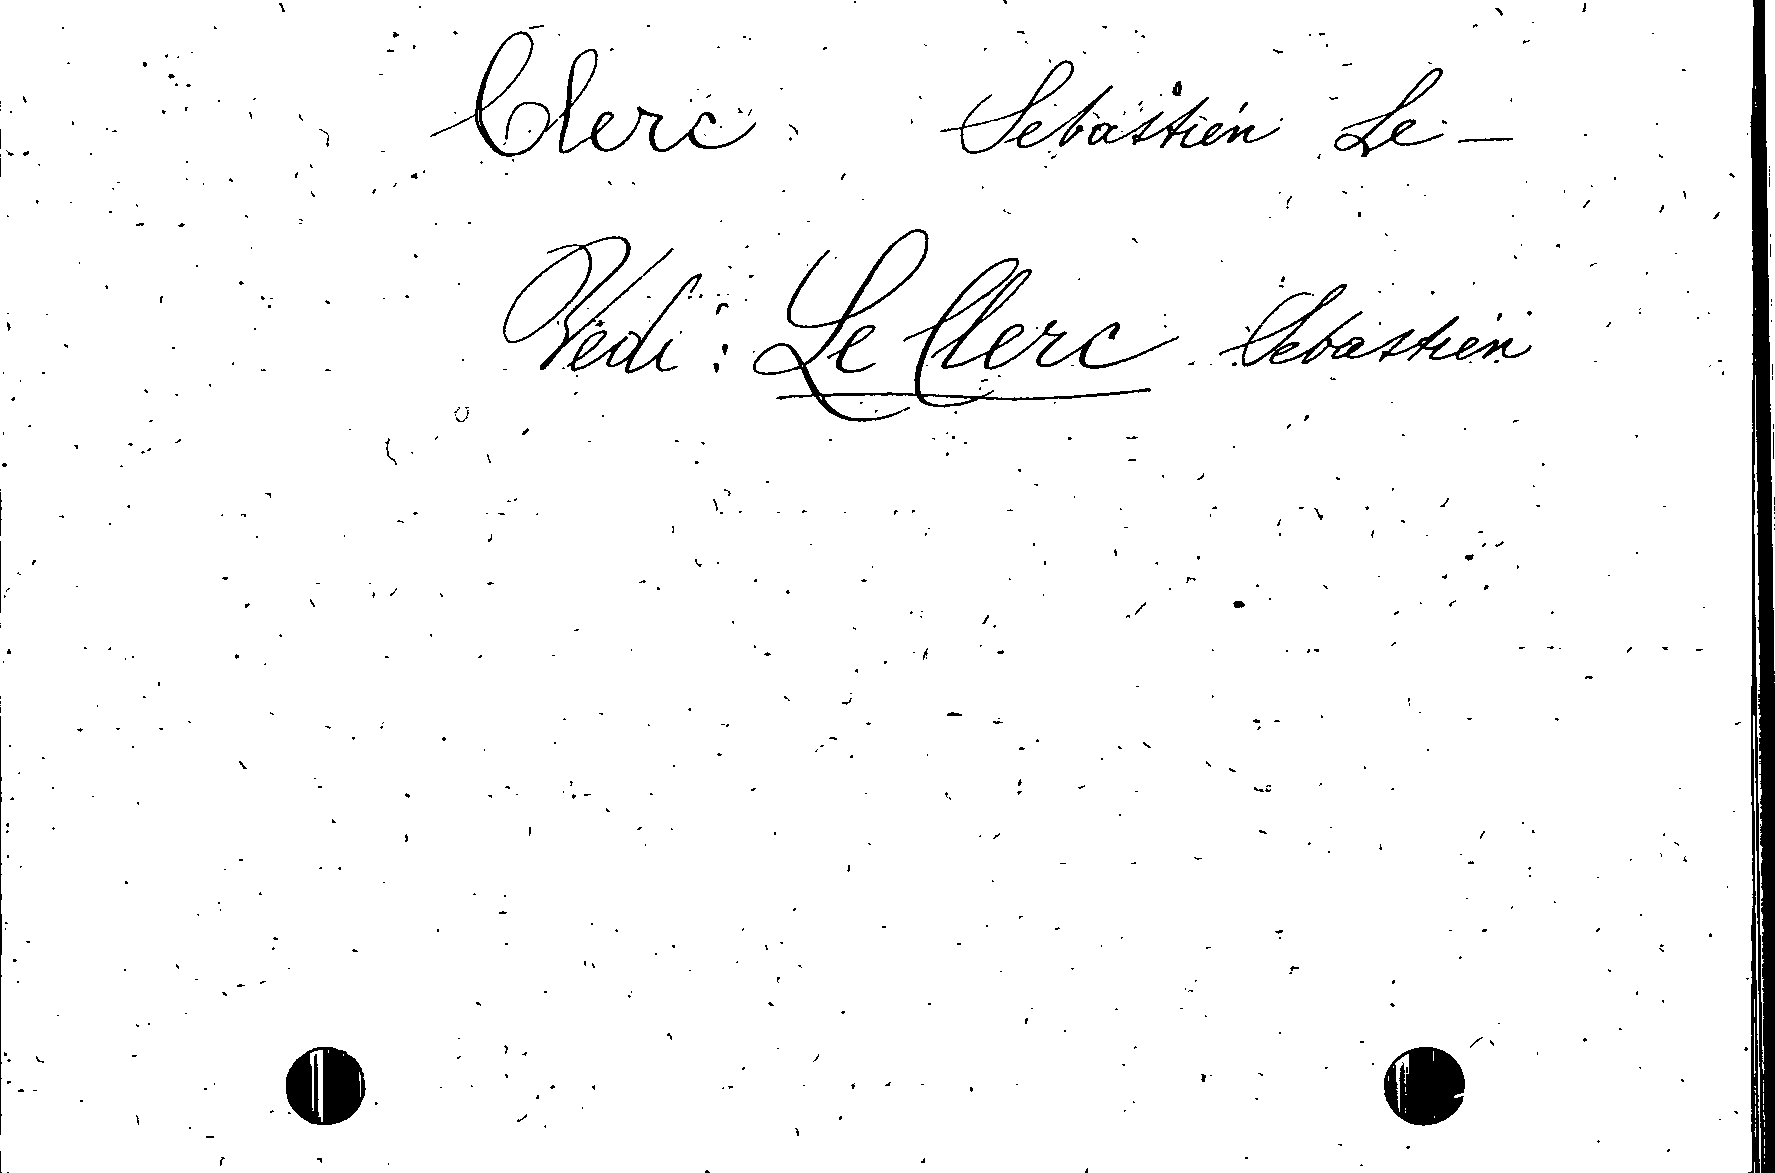 Clerc Sebastien Le –
Vedi : Le Clerc Sebastien